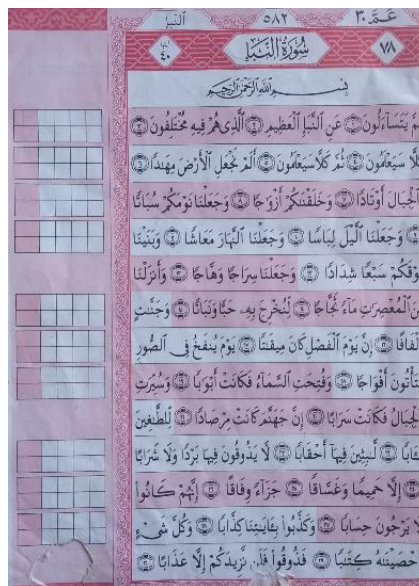 النبأ ٥٨٢ عم ٣٠
٧٨ سُورَةُ النَّبَإِ ٤٠
بِسْمِ اللَّهِ الرَّحْمَنِ الرَّحِيمِ
يَتَسَاءَلُونَ ١ عَنِ النَّبَإِ الْعَظِيمِ ٢ الَّذِي هُمْ فِيهِ مُخْتَلِفُونَ ٣
سَيَعْلَمُونَ ٤ ثُمَّ كَلَّا سَيَعْلَمُونَ ٥ أَلَمْ نَجْعَلِ الْأَرْضَ مِهَادًا ٦
الْجِبَالَ أَوْتَادًا ٧ وَخَلَقْنَاكُمْ أَزْوَاجًا ٨ وَجَعَلْنَا نَوْمَكُمْ سُبَاتًا
٩ وَجَعَلْنَا اللَّيْلَ لِبَاسًا ١٠ وَجَعَلْنَا النَّهَارَ مَعَاشًا ١١ وَبَنَيْنَا
سَبْعًا شِدَادًا ١٢ وَجَعَلْنَا سِرَاجًا وَهَّاجًا ١٣ وَأَنزَلْنَا
الْمُعْصِرَاتِ مَاءً ثَجَّاجًا ١٤ لِّنُخْرِجَ بِهِ حَبًّا وَنَبَاتًا ١٥ وَجَنَّاتٍ
أَلْفَافًا ١٦ إِنَّ يَوْمَ الْفَصْلِ كَانَ مِيقَاتًا ١٧ يَوْمَ يُنفَخُ فِي الصُّورِ
فَتَأْتُونَ أَفْوَاجًا ١٨ وَفُتِحَتِ السَّمَاءُ فَكَانَتْ أَبْوَابًا ١٩ وَسُيِّرَتِ
الْجِبَالُ فَكَانَتْ سَرَابًا ٢٠ إِنَّ جَهَنَّمَ كَانَتْ مِرْصَادًا ٢١ لِّلطَّاغِينَ
٢٢ لَّابِثِينَ فِيهَا أَحْقَابًا ٢٣ لَّا يَذُوقُونَ فِيهَا بَرْدًا وَلَا شَرَابًا
٢٤ إِلَّا حَمِيمًا وَغَسَّاقًا ٢٥ جَزَاءً وِفَاقًا ٢٦ إِنَّهُمْ كَانُوا
لَا يَرْجُونَ حِسَابًا ٢٧ وَكَذَّبُوا بِآيَاتِنَا كِذَّابًا ٢٨ وَكُلَّ شَيْءٍ
أَحْصَيْنَاهُ كِتَابًا ٢٩ فَذُوقُوا فَلَن نَّزِيدَكُمْ إِلَّا عَذَابًا ٣٠